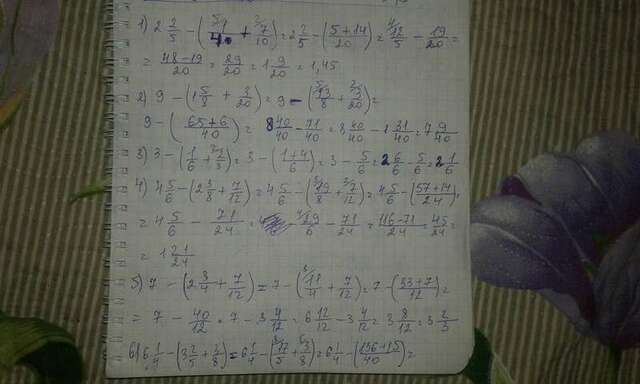 1) 2 2/5 − (1/4 + 7/10) = 2 2/5 − (5+14/20) = 12/5 − 19/20 =
= 48−19/20 = 29/20 = 1 9/20 = 1,45
2) 9 − (1 5/8 + 3/20) = 9 − (13/8 + 3/20) =
9 − (65+6/40) = 8 40/40 − 71/40 = 8 40/40 − 1 31/40 = 7 9/40
3) 3 − (1/6 + 2/3) = 3 − (1+4/6) = 3 − 5/6 = 2 6/6 − 5/6 = 2 1/6
4) 4 5/6 − (2 3/8 + 7/12) = 4 5/6 − (19/8 + 7/12) = 4 5/6 − (57+14/24) =
= 4 5/6 − 71/24 = 29/6 − 71/24 = 116−71/24 = 45/24 =
= 1 21/24
5) 7 − (2 3/4 + 7/12) = 7 − (11/4 + 7/12) = 7 − (33+7/12) =
= 7 − 40/12 = 7 − 3 4/12 = 6 12/12 − 3 4/12 = 3 8/12 = 3 2/3
6) 6 1/4 − (3 2/5 + 3/8) = 6 1/4 − (17/5 + 3/8) = 6 1/4 − (136+15/40) =